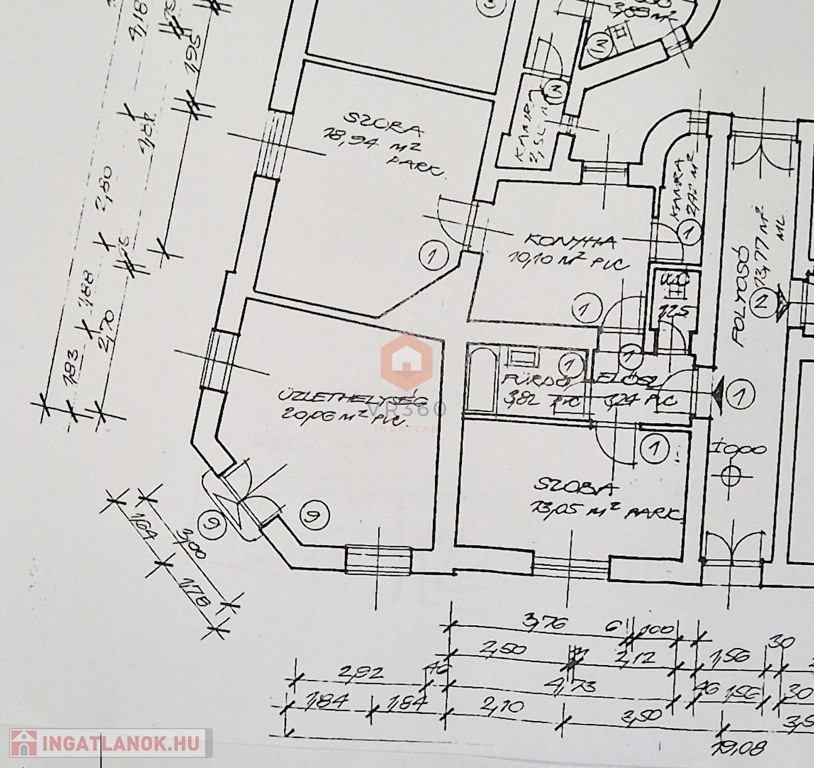 3,88 M²
SZOBA
18,94 M²
PARK.
KAMRA
KAMRA
KONYHA
10,10 M² PVC
FOLYOSÓ
13,77 M²
ML.
1,25
ÜZLETHELYSÉG
20,06 M² PVC
FÜRDŐ
3,82 PVC
ELŐSZ.
3,24 PVC
SZOBA
13,05 M² PARK.
1
1
1
1
1
1
1
2
3
3
3
9
9
4,18
1,95
2,80
1,88
2,70
1,83
1,64
3,00
1,78
3,76
6
1,00
2,50
2,12
1,56
30
2,92
46
4,73
46
1,56
30
1,84
1,84
2,10
3,50
19,08
VR360
INGATLAN
INGATLANOK.HU